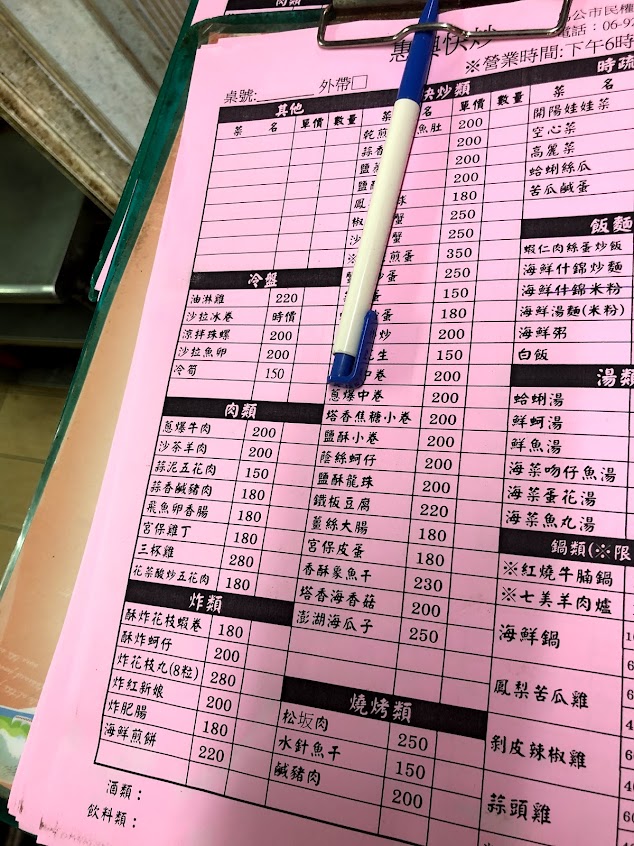 肉類
公市民權
電話：06-92
惠 快炒
※營業時間:下午6時
桌號: 外帶□
其他
菜 名 單價 數量
冷盤
油淋雞 220
沙拉冰卷 時價
涼拌珠螺 200
沙拉魚卵 200
冷筍 150
肉類
蔥爆牛肉 200
沙茶羊肉 200
蒜泥五花肉 150
蒜香鹹豬肉 180
飛魚卵香腸 180
宮保雞丁 180
三杯雞 280
花菜酸炒五花肉 180
炸類
酥炸花枝蝦卷 180
酥炸蚵仔 200
炸花枝丸(8粒) 280
炸紅新娘 200
炸肥腸 180
海鮮煎餅 220
酒類：
飲料類：
快炒類
菜 名 單價 數量
乾煎 魚肚 200
蒜香 200
鹽 200
鹽酥 200
鳳 球 180
椒 蟹 250
沙 蟹 250
※ 煎蛋 350
蛋 250
蛋 150
蛋 180
炒 200
花生 150
中卷 200
蔥爆中卷 200
塔香焦糖小卷 200
鹽酥小卷 200
蔭絲蚵仔 200
鹽酥龍珠 200
鐵板豆腐 220
薑絲大腸 180
宮保皮蛋 180
香酥象魚干 230
塔香海香菇 200
澎湖海瓜子 250
燒烤類
松坂肉 250
水針魚干 150
鹹豬肉 200
時蔬
菜 名
開陽娃娃菜
空心菜
高麗菜
蛤蜊絲瓜
苦瓜鹹蛋
飯麵
蝦仁肉絲蛋炒飯
海鮮什錦炒麵
海鮮什錦米粉
海鮮湯麵(米粉)
海鮮粥
白飯
湯類
蛤蜊湯
鮮蚵湯
鮮魚湯
海菜吻仔魚湯
海菜蛋花湯
海菜魚丸湯
鍋類(※限
※紅燒牛腩鍋
※七美羊肉爐
海鮮鍋
鳳梨苦瓜雞
剝皮辣椒雞
蒜頭雞